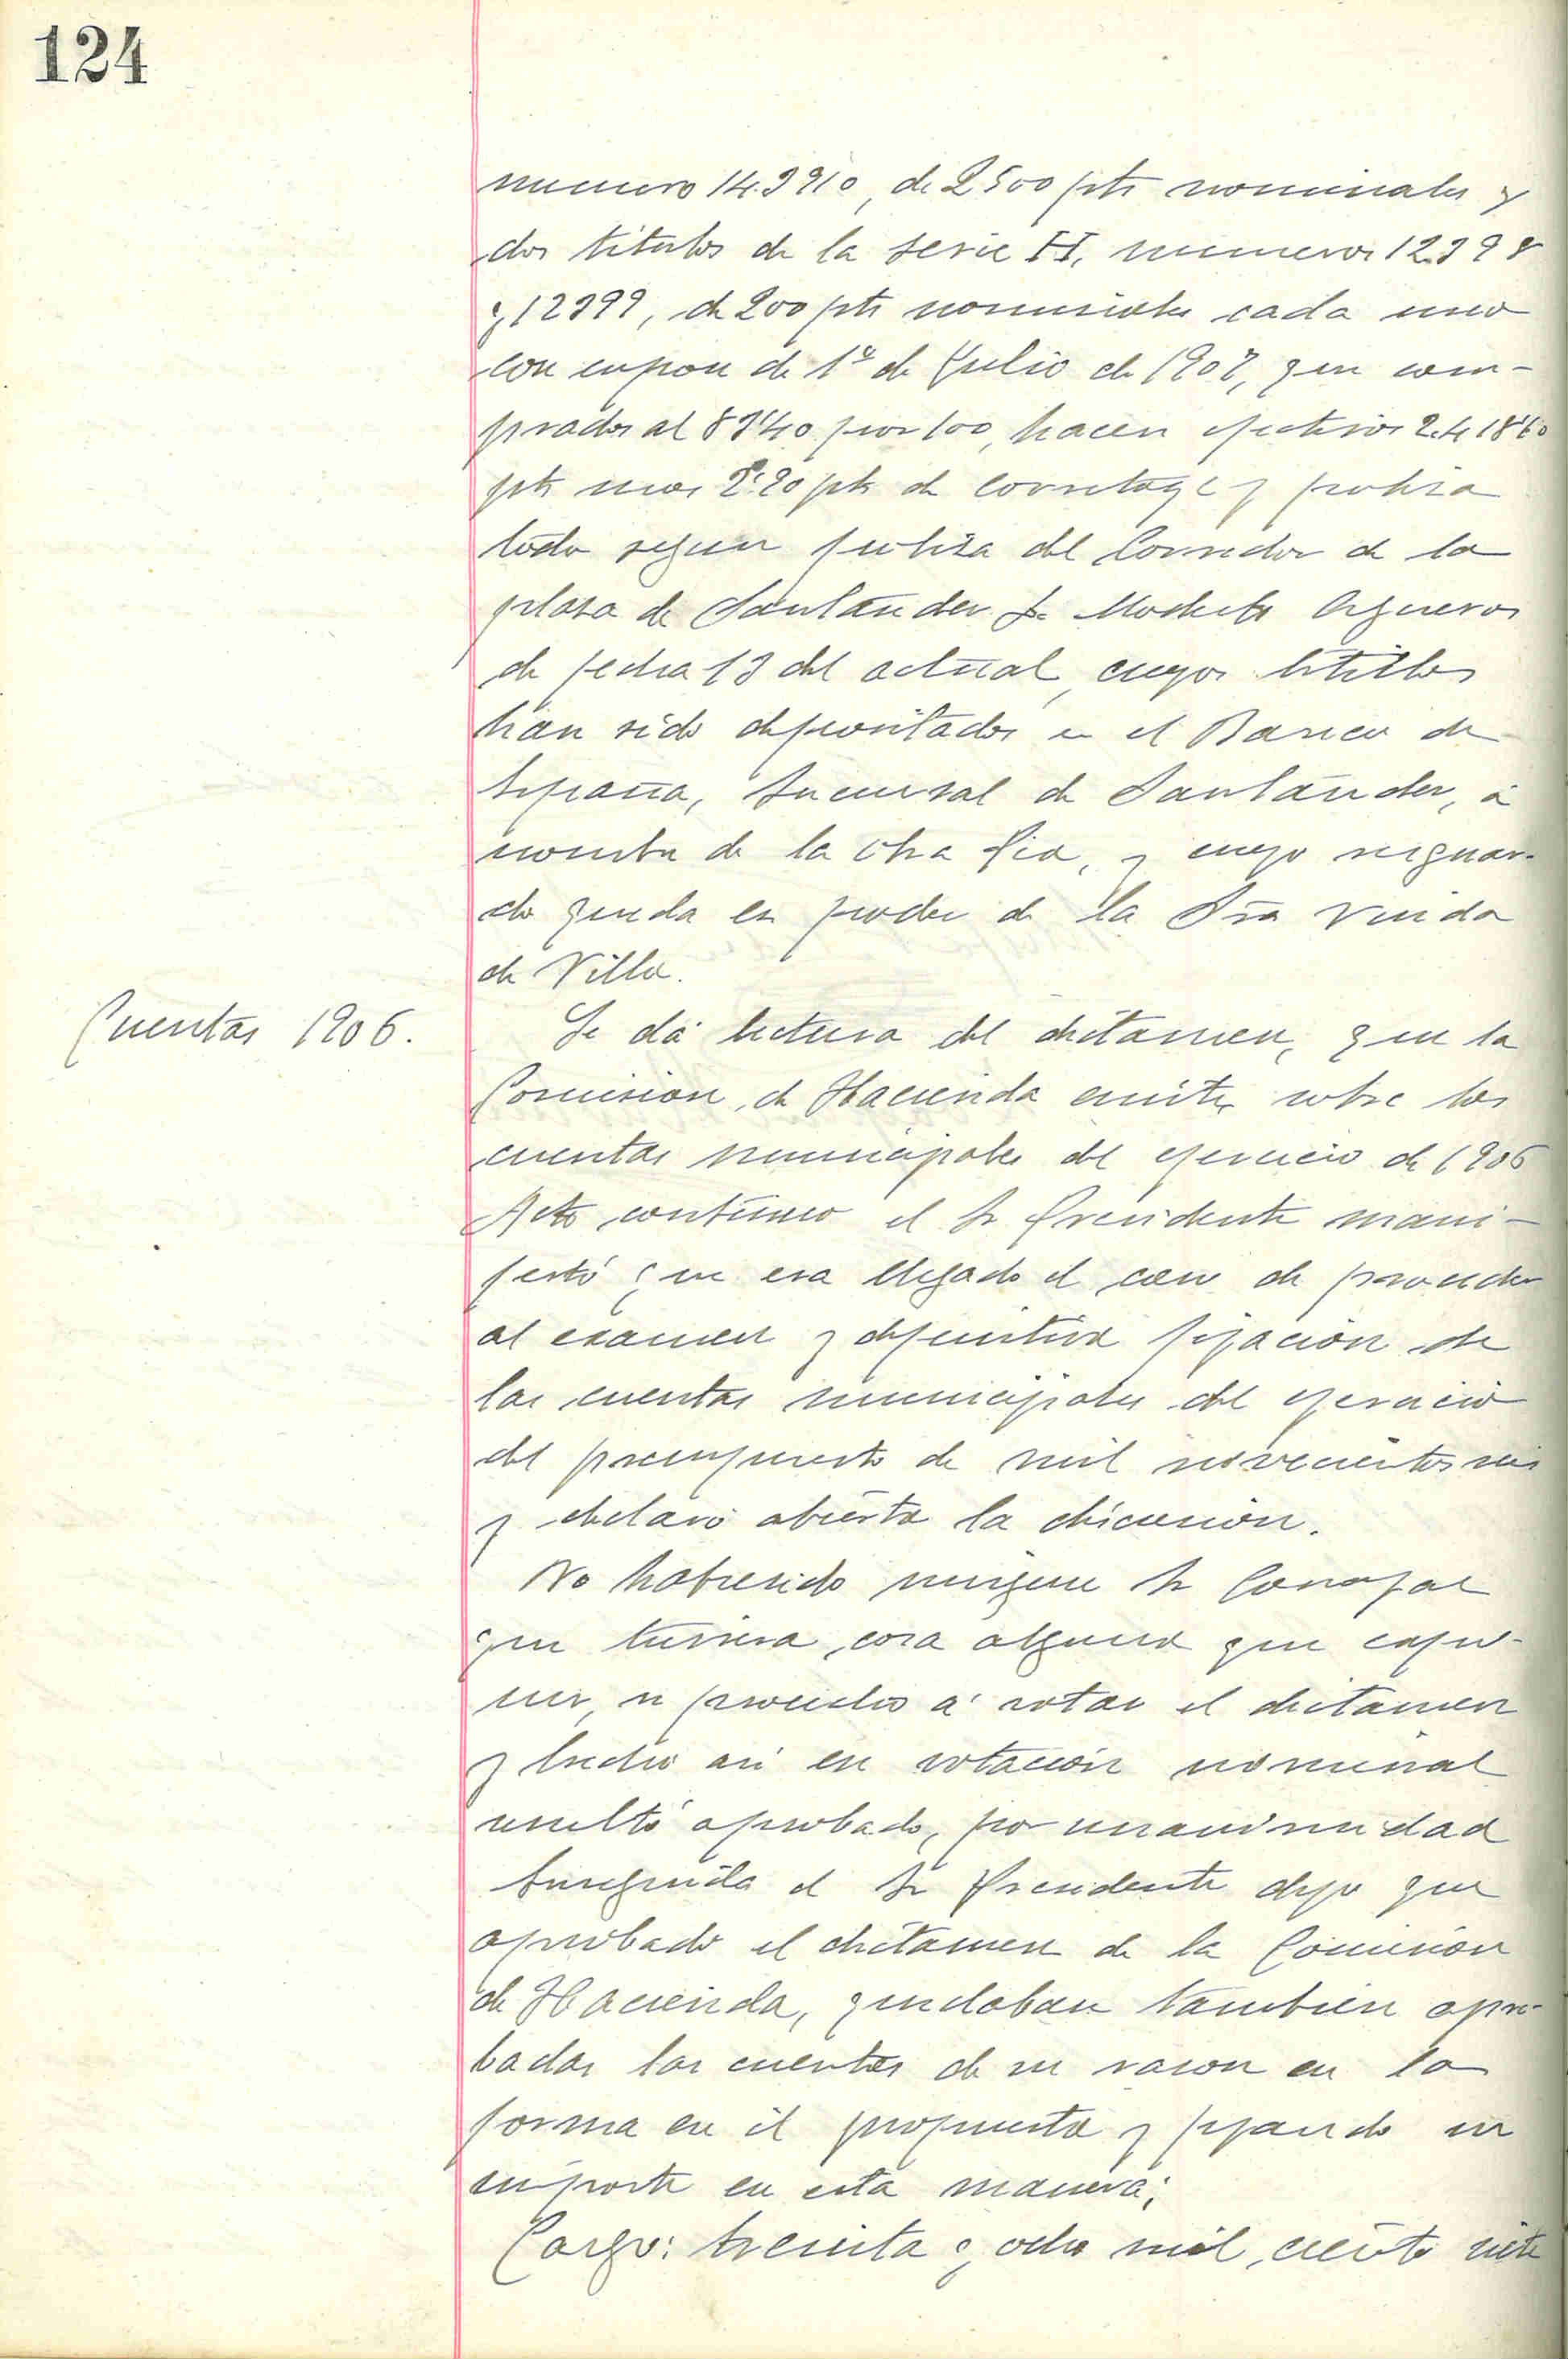 124
numero 14.990, de 2500 pts nominales y
dos titulos de la serie H, numeros 12.998
y 12999, de 200 pts nominales cada uno
con cupon de 1º de Julio de 1907, que com-
prados al 83'40 por 100, hacen efectivos 2.418'60
pts mas 2'90 pts de corretage y poliza
todo segun poliza del Corredor de la
plaza de Santander D. Modesto Agueros
de fecha 13 del actual, cuyos titulos
han sido depositados en el Banco de
España, Sucursal de Santander, á
nombre de la Obra Pia, y cuyo resguar-
do queda en poder de la Sra Viuda
de Villa.
Cuentas 1906.
Se dá lectura del dictamen, que la
Comision de Hacienda emite, sobre las
cuentas municipales del ejercicio de 1906
Acto continuo el Sr Presidente mani-
festó que era llegado el caso de proceder
al examen y definitiva fijación de
las cuentas municipales del ejercicio
del presupuesto de mil novecientos seis
y declaró abierta la dicusión.
No habiendo ningun Sr Concejal
que tuviera cosa alguna que expo-
ner, se procedio a votar el dictamen
y hecho asi en votación nominal
resultó aprobado, por unanimidad
Enseguida el Sr Presidente dijo que
aprobado el dictamen de la Comisión
de Hacienda, quedaban tambien apro-
badas las cuentas de su razon en la
forma en él propuesta y fijando su
importe en esta manera;
Cargo: treinta y ocho mil, ciento siete